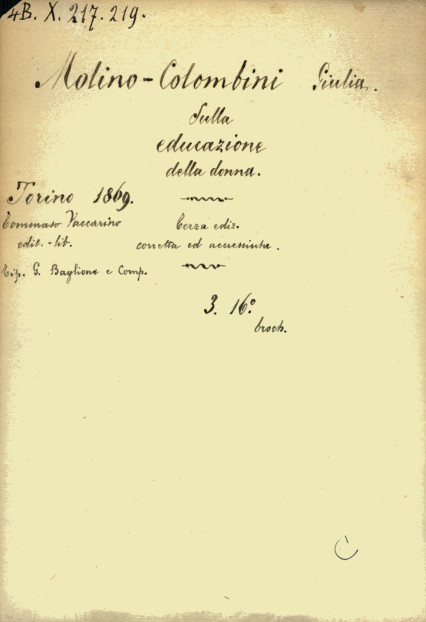 4B. X. 217.219.
Molino-Colombini Giulia.
Sulla
educazione
della donna.
Torino 1869.
Tommaso Vaccarino
edit.-lib.
Terza ediz.
corretta ed accresciuta.
Tip. G. Baglione e Comp.
3. 16.º
broch.